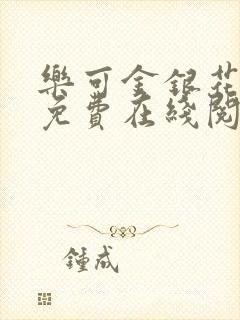 樂可金銀花
免費在綫閱
鍾成